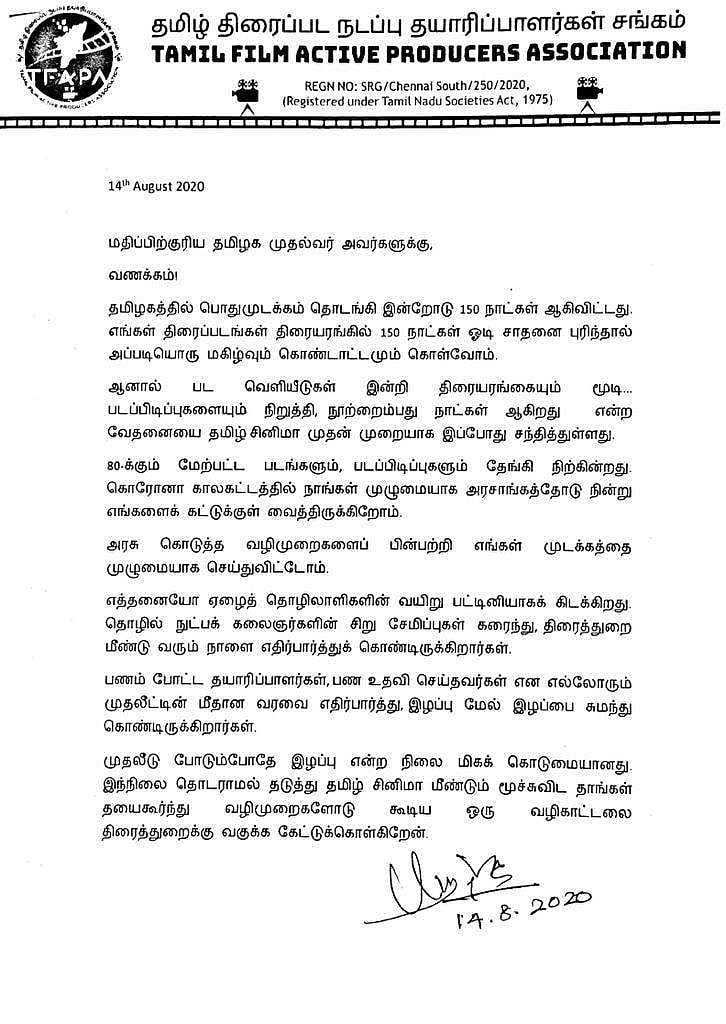 தமிழ் திரைப்பட நடப்பு தயாரிப்பாளர்கள் சங்கம்
TAMIL FILM ACTIVE PRODUCERS ASSOCIATION
TFAPA
REGN NO: SRG/Chennai South/250/2020,
(Registered under Tamil Nadu Societies Act, 1975)
14th August 2020
மதிப்பிற்குரிய தமிழக முதல்வர் அவர்களுக்கு,
வணக்கம்!
தமிழகத்தில் பொதுமுடக்கம் தொடங்கி இன்றோடு 150 நாட்கள் ஆகிவிட்டது.
எங்கள் திரைப்படங்கள் திரையரங்கில் 150 நாட்கள் ஓடி சாதனை புரிந்தால்
அப்படியொரு மகிழ்வும் கொண்டாட்டமும் கொள்வோம்.
ஆனால் பட வெளியீடுகள் இன்றி திரையரங்கையும் மூடி...
படப்பிடிப்புகளையும் நிறுத்தி, நூற்றைம்பது நாட்கள் ஆகிறது என்ற
வேதனையை தமிழ் சினிமா முதன் முறையாக இப்போது சந்தித்துள்ளது.
80-க்கும் மேற்பட்ட படங்களும், படப்பிடிப்புகளும் தேங்கி நிற்கின்றது.
கொரோனா காலகட்டத்தில் நாங்கள் முழுமையாக அரசாங்கத்தோடு நின்று
எங்களைக் கட்டுக்குள் வைத்திருக்கிறோம்.
அரசு கொடுத்த வழிமுறைகளைப் பின்பற்றி எங்கள் முடக்கத்தை
முழுமையாக செய்துவிட்டோம்.
எத்தனையோ ஏழைத் தொழிலாளிகளின் வயிறு பட்டினியாகக் கிடக்கிறது.
தொழில் நுட்பக் கலைஞர்களின் சிறு சேமிப்புகள் கரைந்து, திரைத்துறை
மீண்டு வரும் நாளை எதிர்பார்த்துக் கொண்டிருக்கிறார்கள்.
பணம் போட்ட தயாரிப்பாளர்கள், பண உதவி செய்தவர்கள் என எல்லோரும்
முதலீட்டின் மீதான வரவை எதிர்பார்த்து, இழப்பு மேல் இழப்பை சுமந்து
கொண்டிருக்கிறார்கள்.
முதலீடு போடும்போதே இழப்பு என்ற நிலை மிகக் கொடுமையானது.
இந்நிலை தொடராமல் தடுத்து தமிழ் சினிமா மீண்டும் மூச்சுவிட தாங்கள்
தயைகூர்ந்து வழிமுறைகளோடு கூடிய ஒரு வழிகாட்டலை
திரைத்துறைக்கு வகுக்க கேட்டுக்கொள்கிறேன்.
14.8.2020